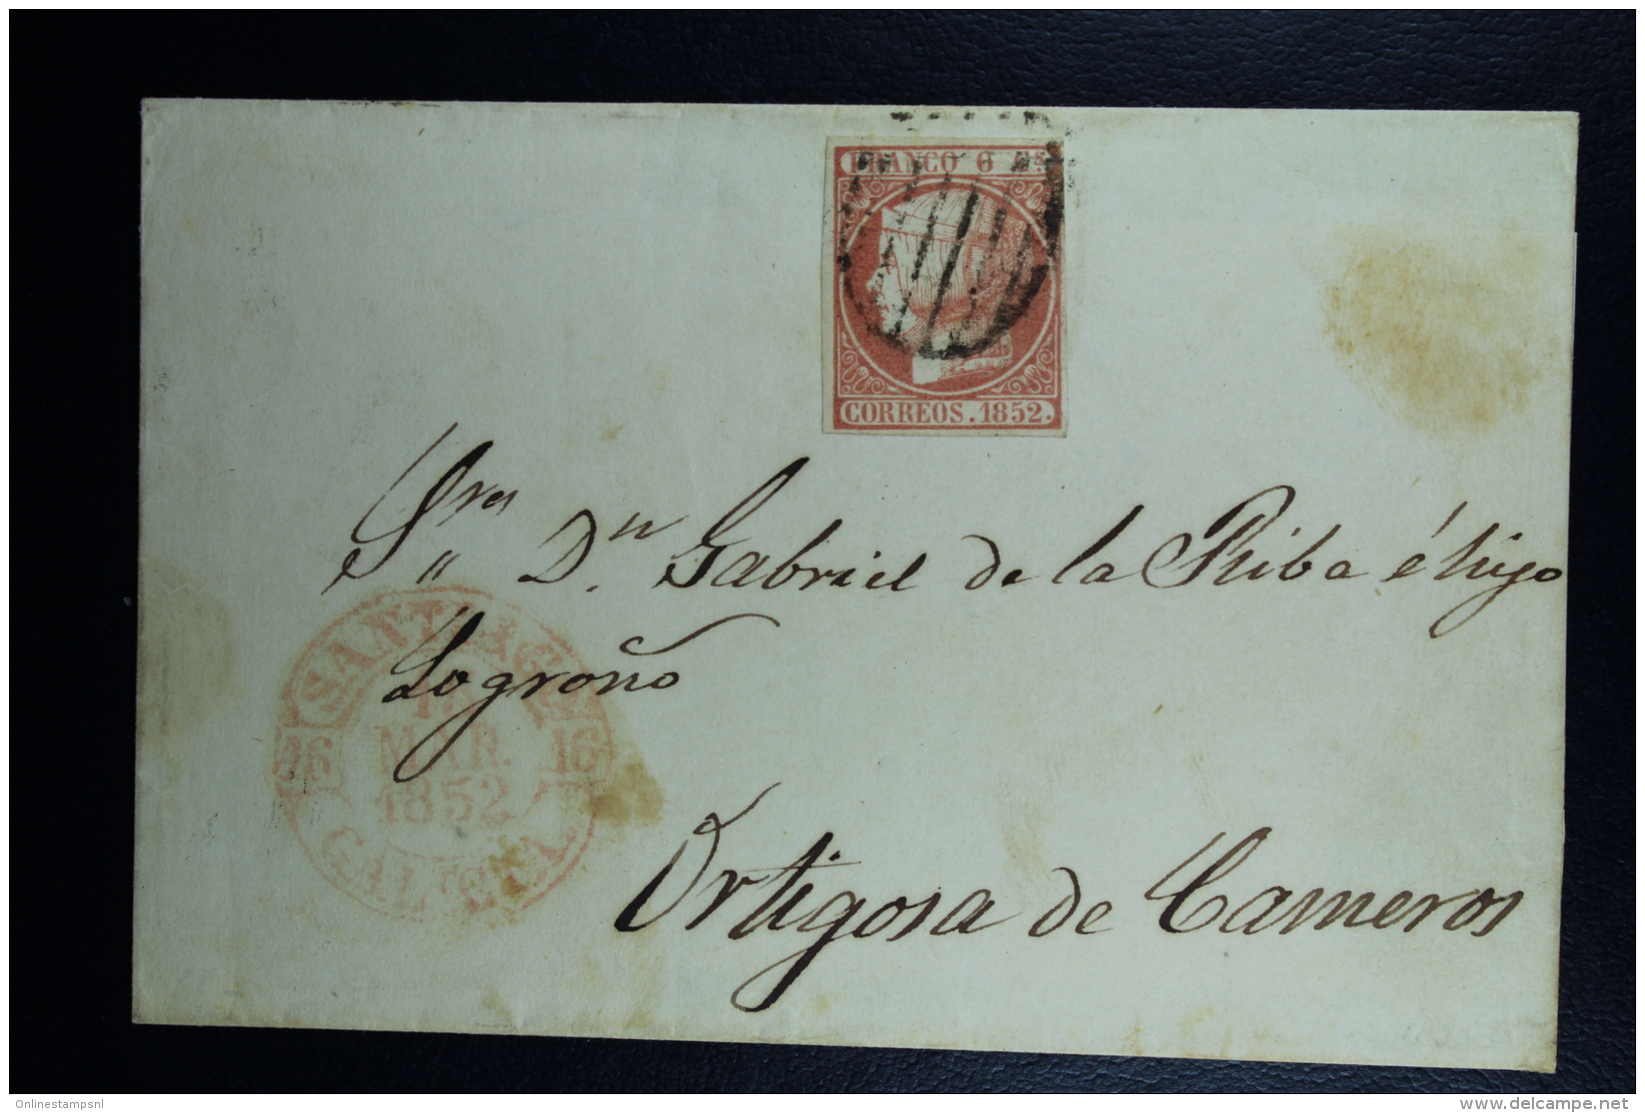 FRANCO 6 Cs
CORREOS. 1852.
Sres Dn. Gabriel de la Riba é hijo
Logroño
SANTIAGO
MAR.
1852
16 16
GALICIA
Ortigosa de Cameros
Onlinestampsnl
delcampe.net